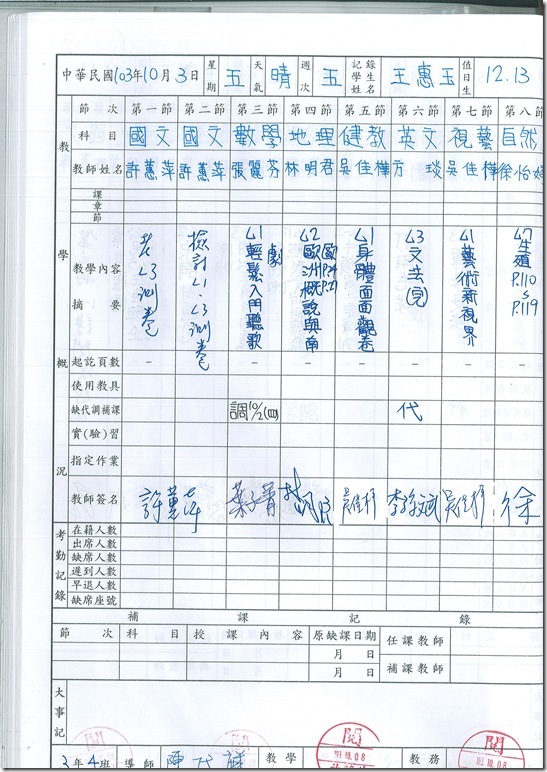 中華民國103年10月3日 星期 五 天氣 晴 週次 五 記錄學生姓名 王惠玉 值日生 12.13
節次 第一節 第二節 第三節 第四節 第五節 第六節 第七節 第八節
科目 國文 國文 數學 地理 健教 英文 視藝 自然
教師姓名 許蕙萍 許蕙萍 張麗芬 林明君 吳佳樺 方 琰 吳佳樺 徐怡
課
章
節
教學概況
教學內容摘要
考L3測卷
檢討L1.L3測卷
L1輕鬆入門聽歌劇
L2歐洲概說與南歐P.24 P.27
L1身體面面觀卷
L3文法(完)
L1藝術新視界
L7生殖P.110~P.119
起訖頁數 – – – – – – – –
使用教具
缺代調補課 調10/2(四) 代
實(驗)習
指定作業
教師簽名 許蕙萍 吳佳樺 吳佳樺 徐
考勤記錄
在籍人數
出席人數
缺席人數
遲到人數
早退人數
缺席座號
補課記錄
節次 科目 授課內容 原缺課日期 任課教師
月 日
月 日 補課教師
大事記
閱 閱
3年4班 導師 陳 教學 教務